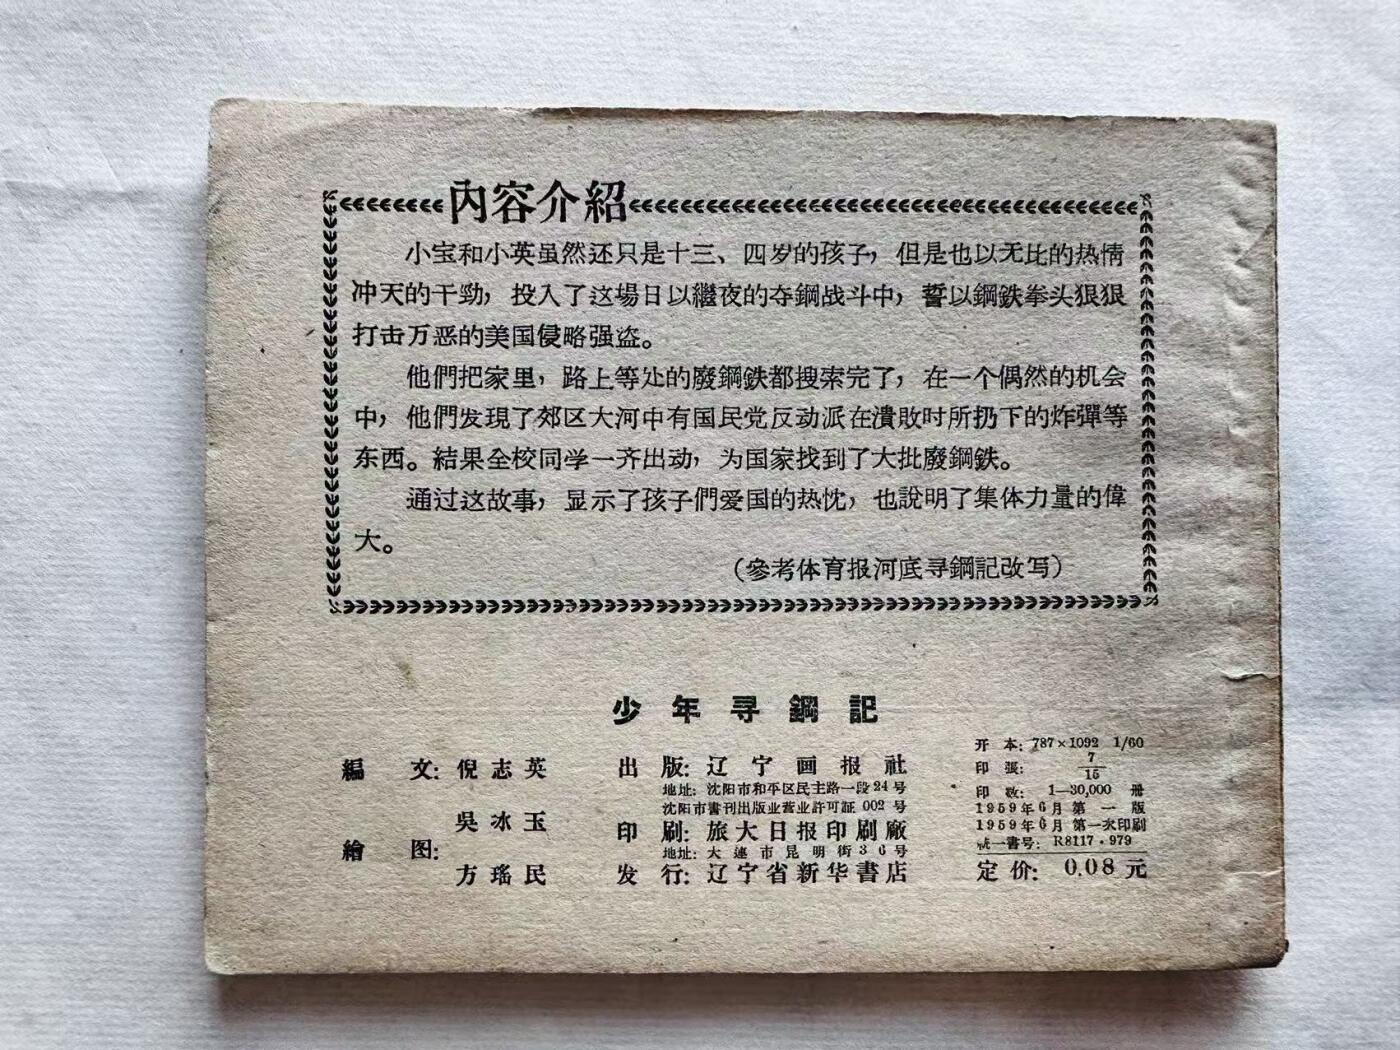 內容介紹
小宝和小英虽然还只是十三、四岁的孩子，但是也以无比的热情
冲天的干勁，投入了这場日以繼夜的夺鋼战斗中，誓以鋼鉄拳头狠狠
打击万恶的美国侵略强盗。
他們把家里，路上等处的廢鋼鉄都搜索完了，在一个偶然的机会
中，他們发現了郊区大河中有国民党反动派在潰敗时所扔下的炸彈等
东西。結果全校同学一齐出动，为国家找到了大批廢鋼鉄。
通过这故事，显示了孩子們爱国的热忱，也說明了集体力量的偉
大。
（參考体育报河底寻鋼記改写）
少年寻鋼記
編 文：倪志英
繪 图：吳冰玉
方瑤民
出 版：辽宁画报社
地址：沈阳市和平区民主路一段24号
沈阳市書刊出版业营业許可証 002 号
印 刷：旅大日报印刷廠
地址：大連市昆明街36号
发 行：辽宁省新华書店
开 本：787×1092 1/60
印 張：7/15
印 数：1—30,000 册
1959年6月第一版
1959年6月第一次印刷
統一書号：R8117·979
定 价：0.08元